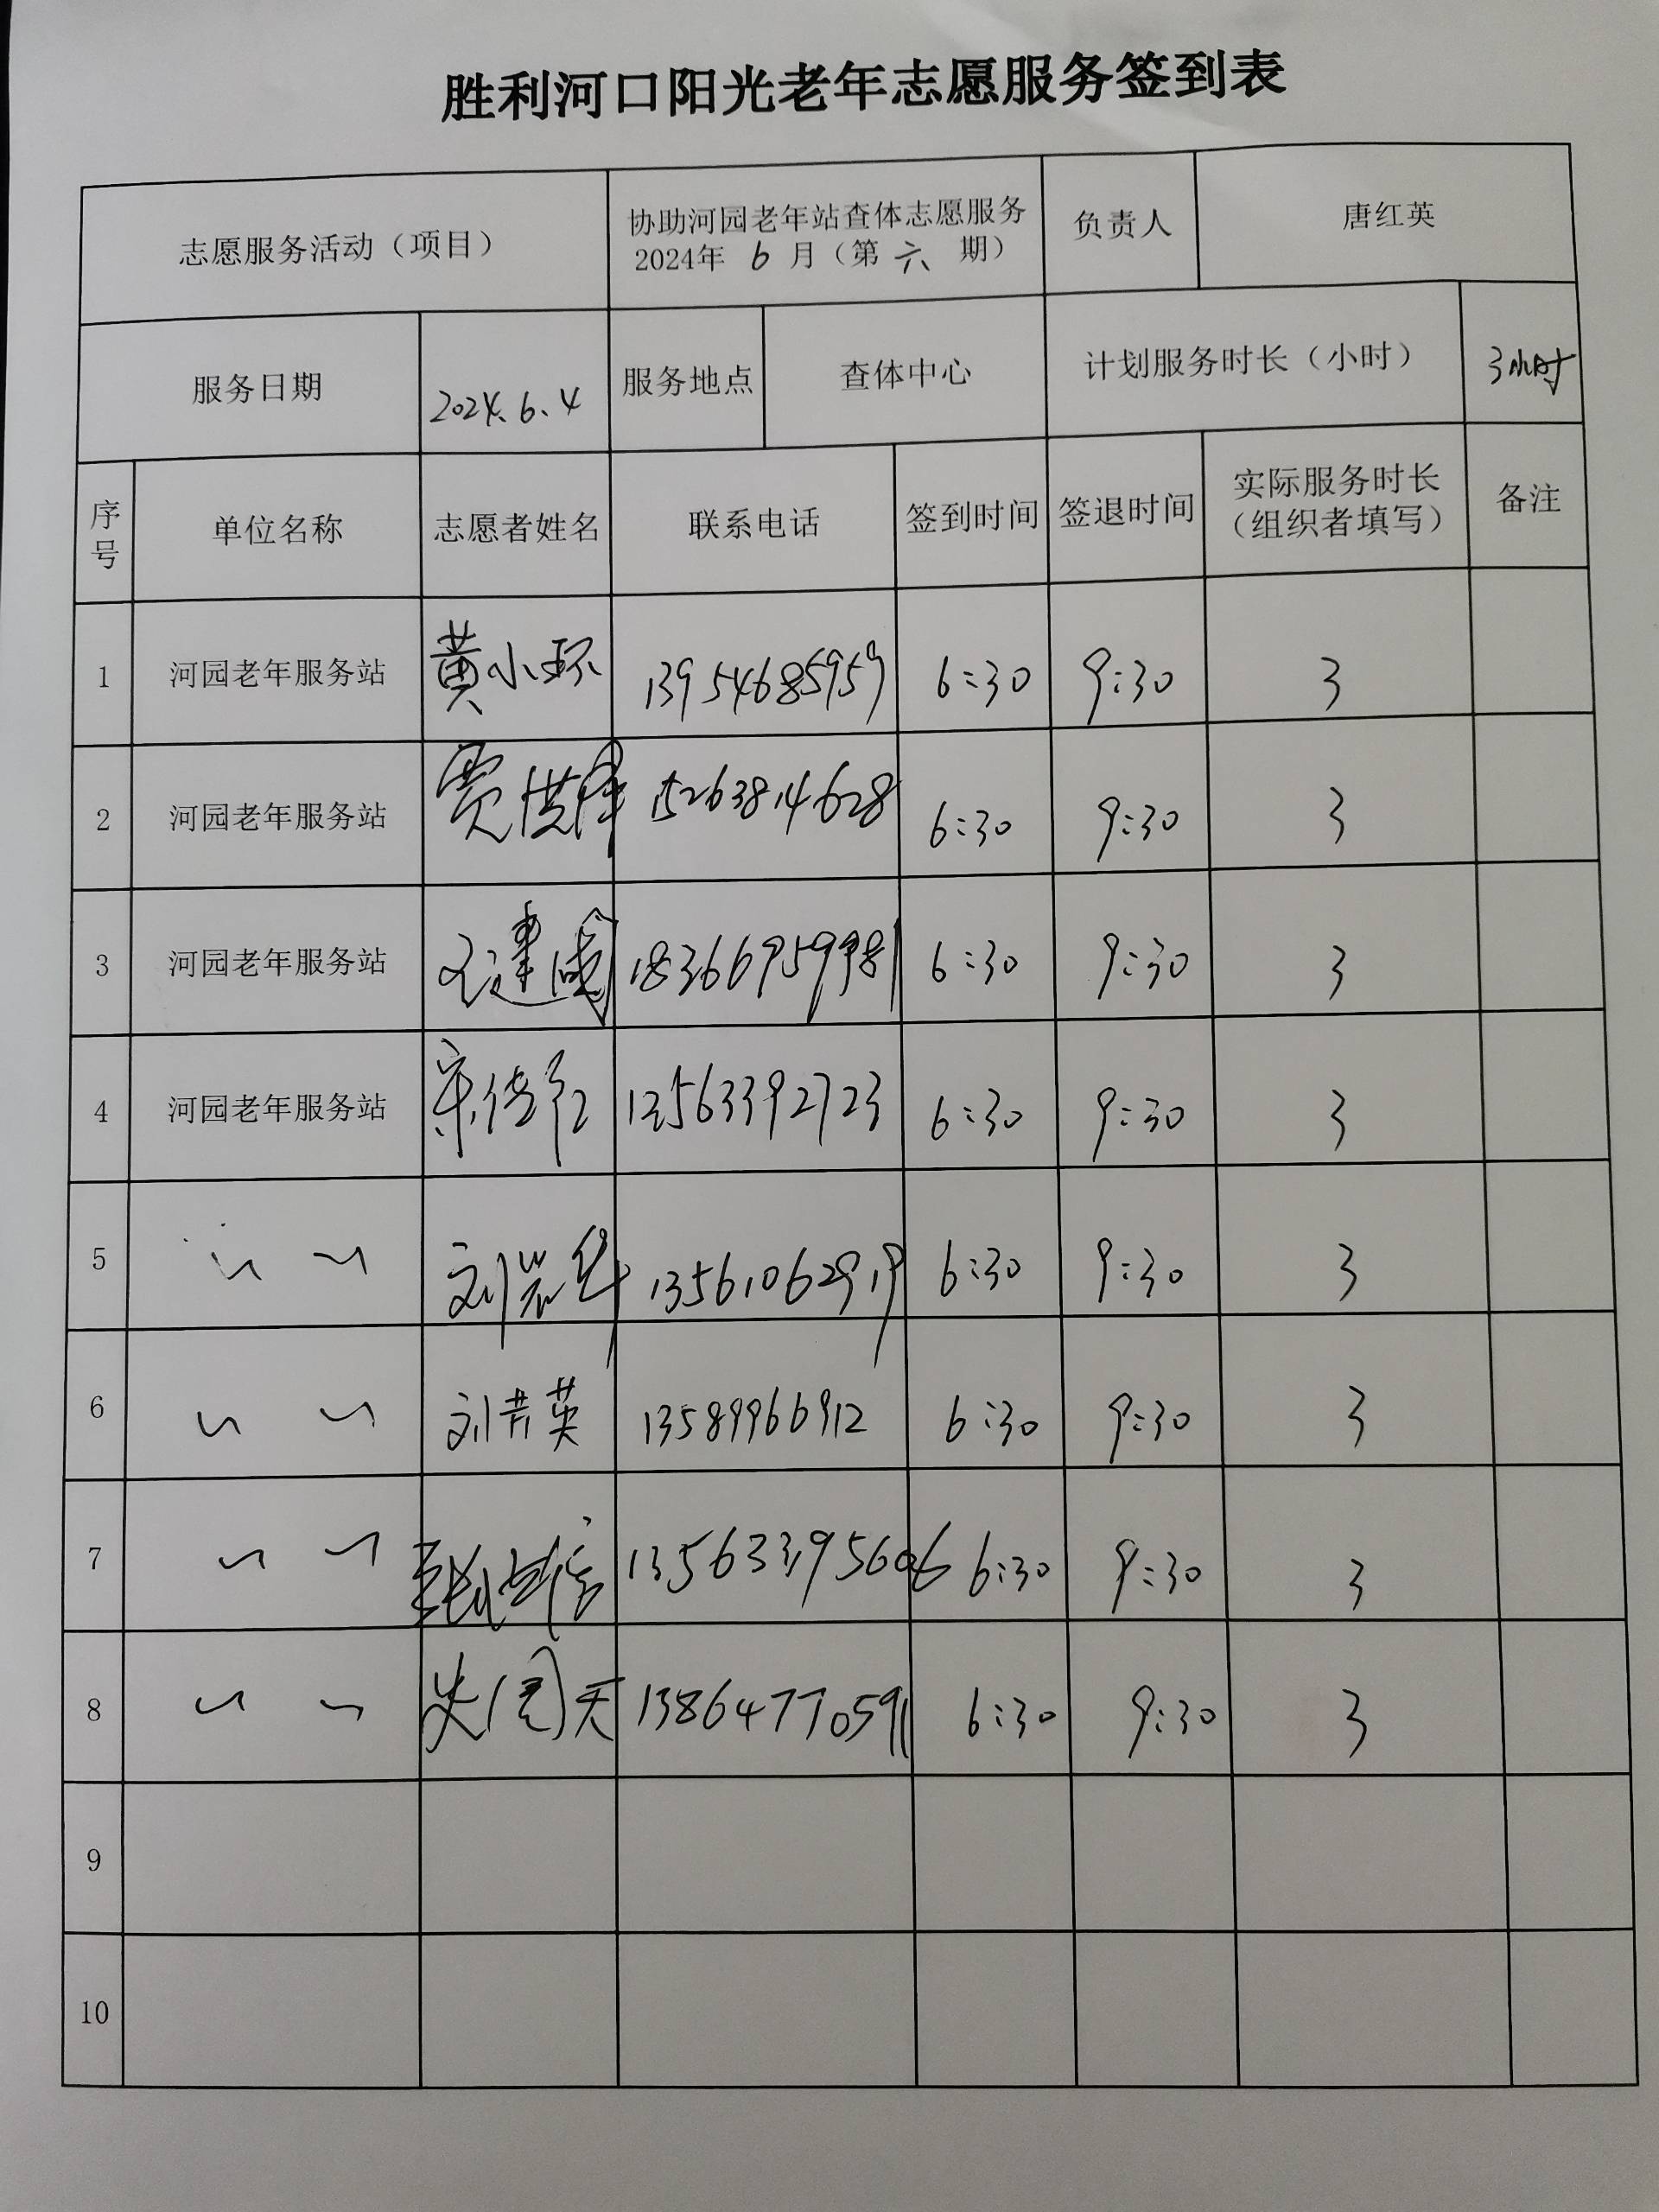 胜利河口阳光老年志愿服务签到表
志愿服务活动（项目）
协助河园老年站查体志愿服务
2024年 6 月（第 六 期）
负责人
唐红英
服务日期
2024.6.4
服务地点
查体中心
计划服务时长（小时）
3小时
序号
单位名称
志愿者姓名
联系电话
签到时间
签退时间
实际服务时长
（组织者填写）
备注
1 河园老年服务站 黄小环 13954685959 6:30 9:30 3
2 河园老年服务站 贾洪 15263814628 6:30 9:30 3
3 河园老年服务站 王建国 18366959981 6:30 9:30 3
4 河园老年服务站 宋 13563392723 6:30 9:30 3
5 〃 〃 刘岩华 13561062919 6:30 9:30 3
6 〃 〃 刘芳英 13589966912 6:30 9:30 3
7 〃 〃 13563395606 6:30 9:30 3
8 〃 〃 13864770591 6:30 9:30 3
9
10